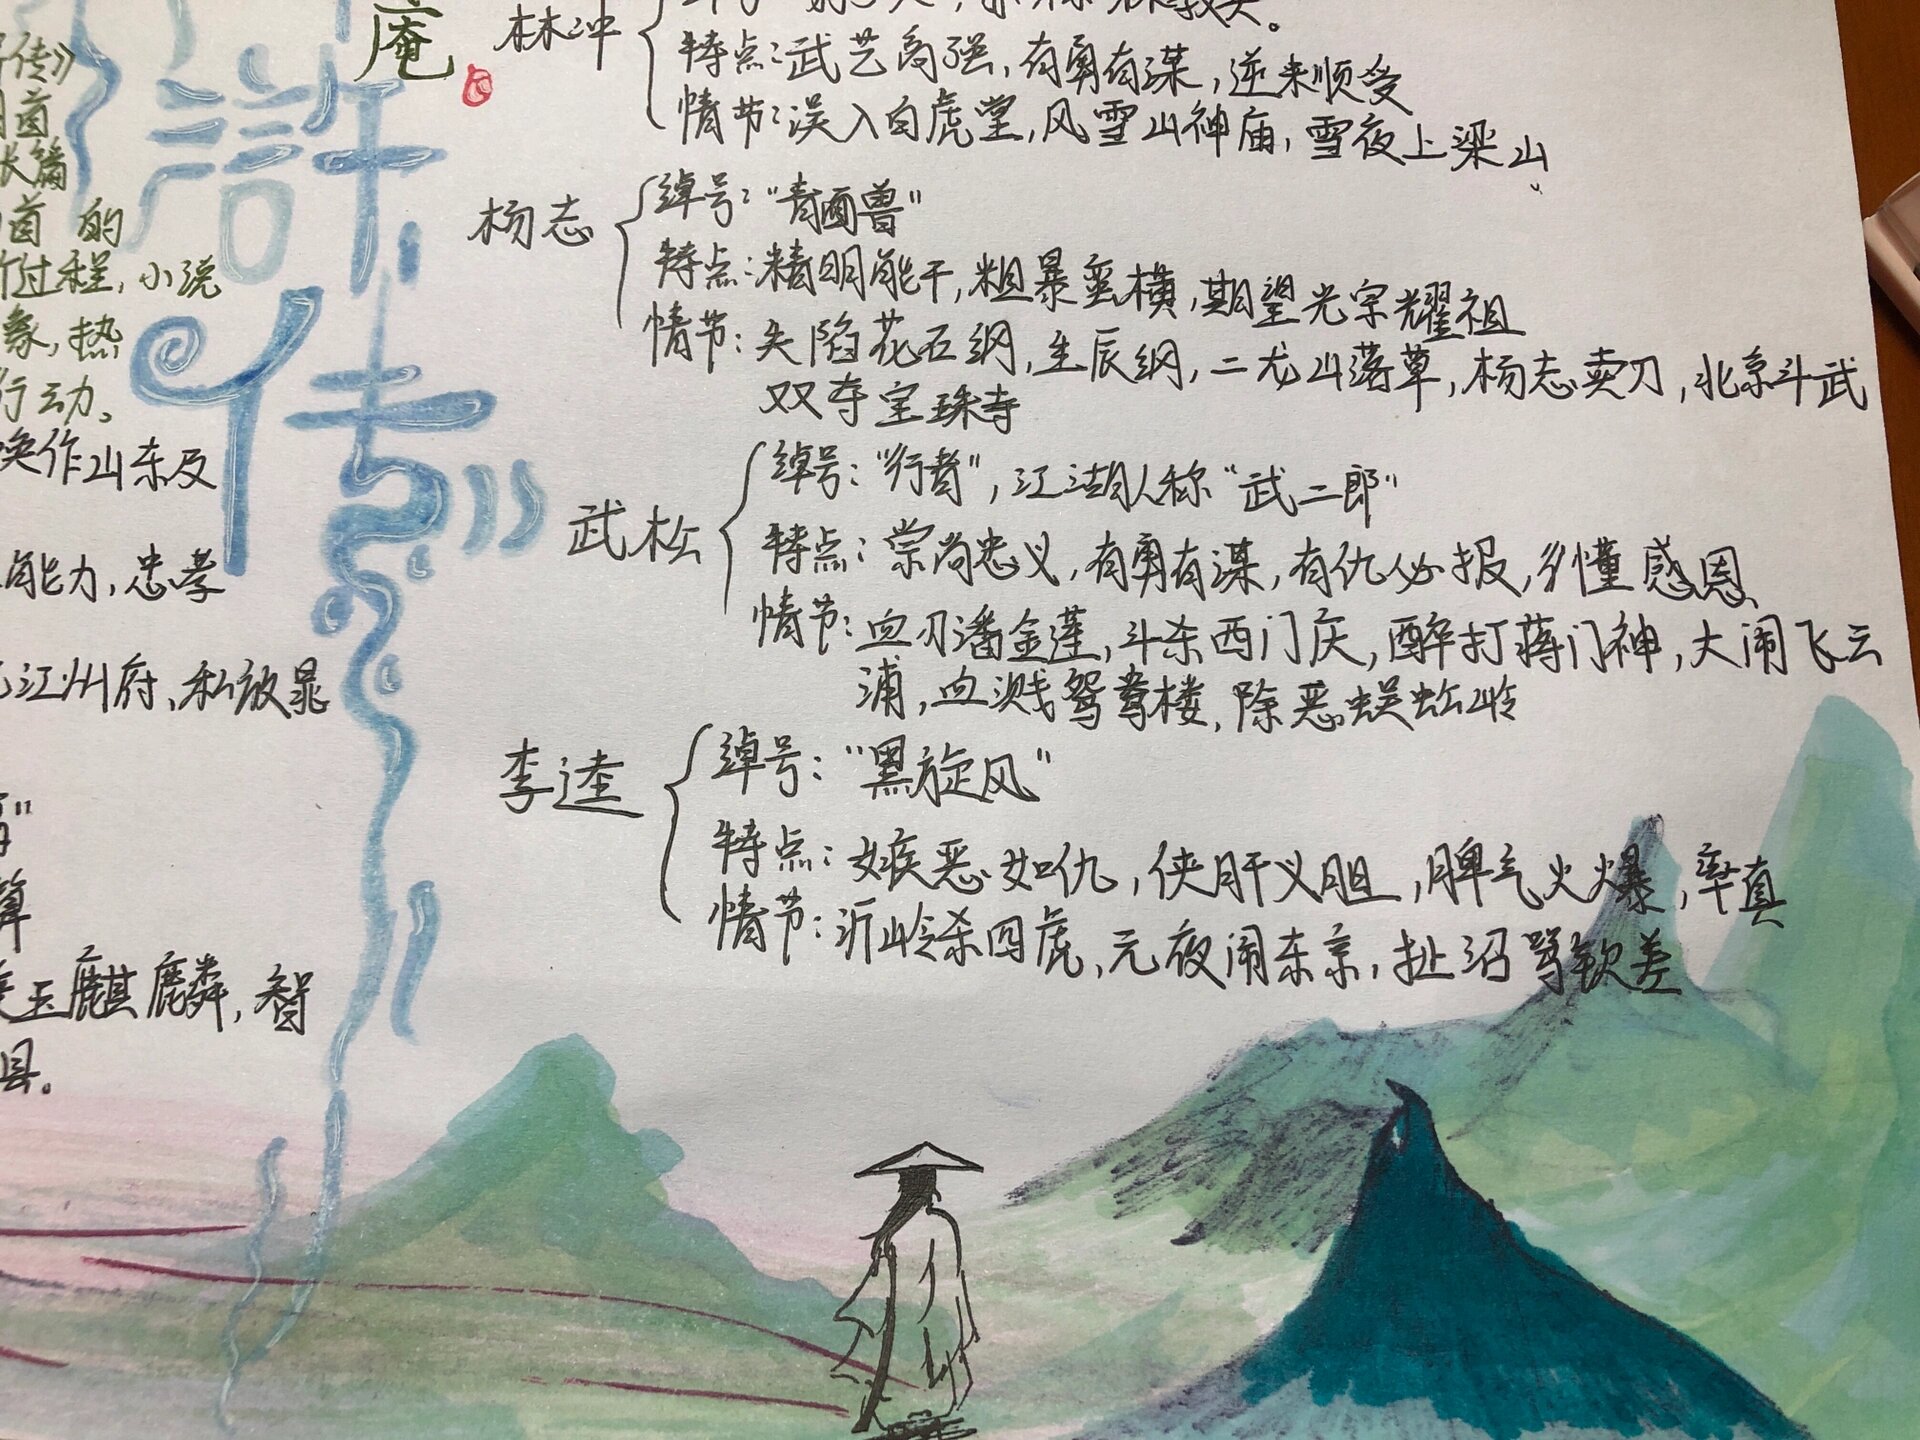 庵
浒传》
林冲
特点:武艺高强,有勇有谋,逆来顺受
情节:误入白虎堂,风雪山神庙,雪夜上梁山
杨志
绰号:“青面兽”
特点:精明能干,粗暴蛮横,期望光宗耀祖
情节:失陷花石纲,生辰纲,二龙山落草,杨志卖刀,北京斗武
双夺宝珠寺
武松
绰号:“行者”,江湖人称“武二郎”
特点:崇尚忠义,有勇有谋,有仇必报,懂感恩
情节:血刃潘金莲,斗杀西门庆,醉打蒋门神,大闹飞云
浦,血溅鸳鸯楼,除恶蜈蚣岭
李逵
绰号:“黑旋风”
特点:嫉恶如仇,侠肝义胆,脾气火爆,率真
情节:沂岭杀四虎,元夜闹东京,扯诏骂钦差
传》
长篇
的
过程,小说
象,热
行动。
换作山东及
能力,忠孝
江州府、私放晁
算
玉麒麟,智
县。